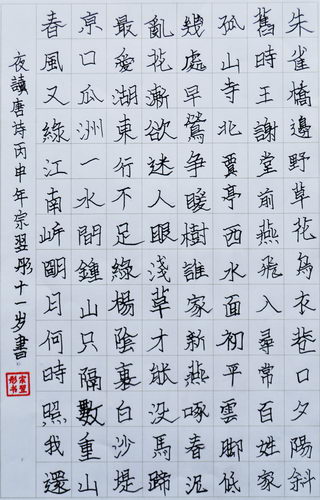 朱雀橋邊野草花烏衣巷口夕陽斜
舊時王謝堂前燕飛入尋常百姓家
孤山寺北賈亭西水面初平雲腳低
幾處早鶯争暖樹誰家新燕啄春泥
亂花漸欲迷人眼淺草才能沒馬蹄
最愛湖東行不足綠楊陰裏白沙堤
京口瓜洲一水間鐘山只隔數重山
春風又綠江南岸明月何時照我還
夜讀唐詩丙申年宗翌彤十一岁書
宗翌彤书